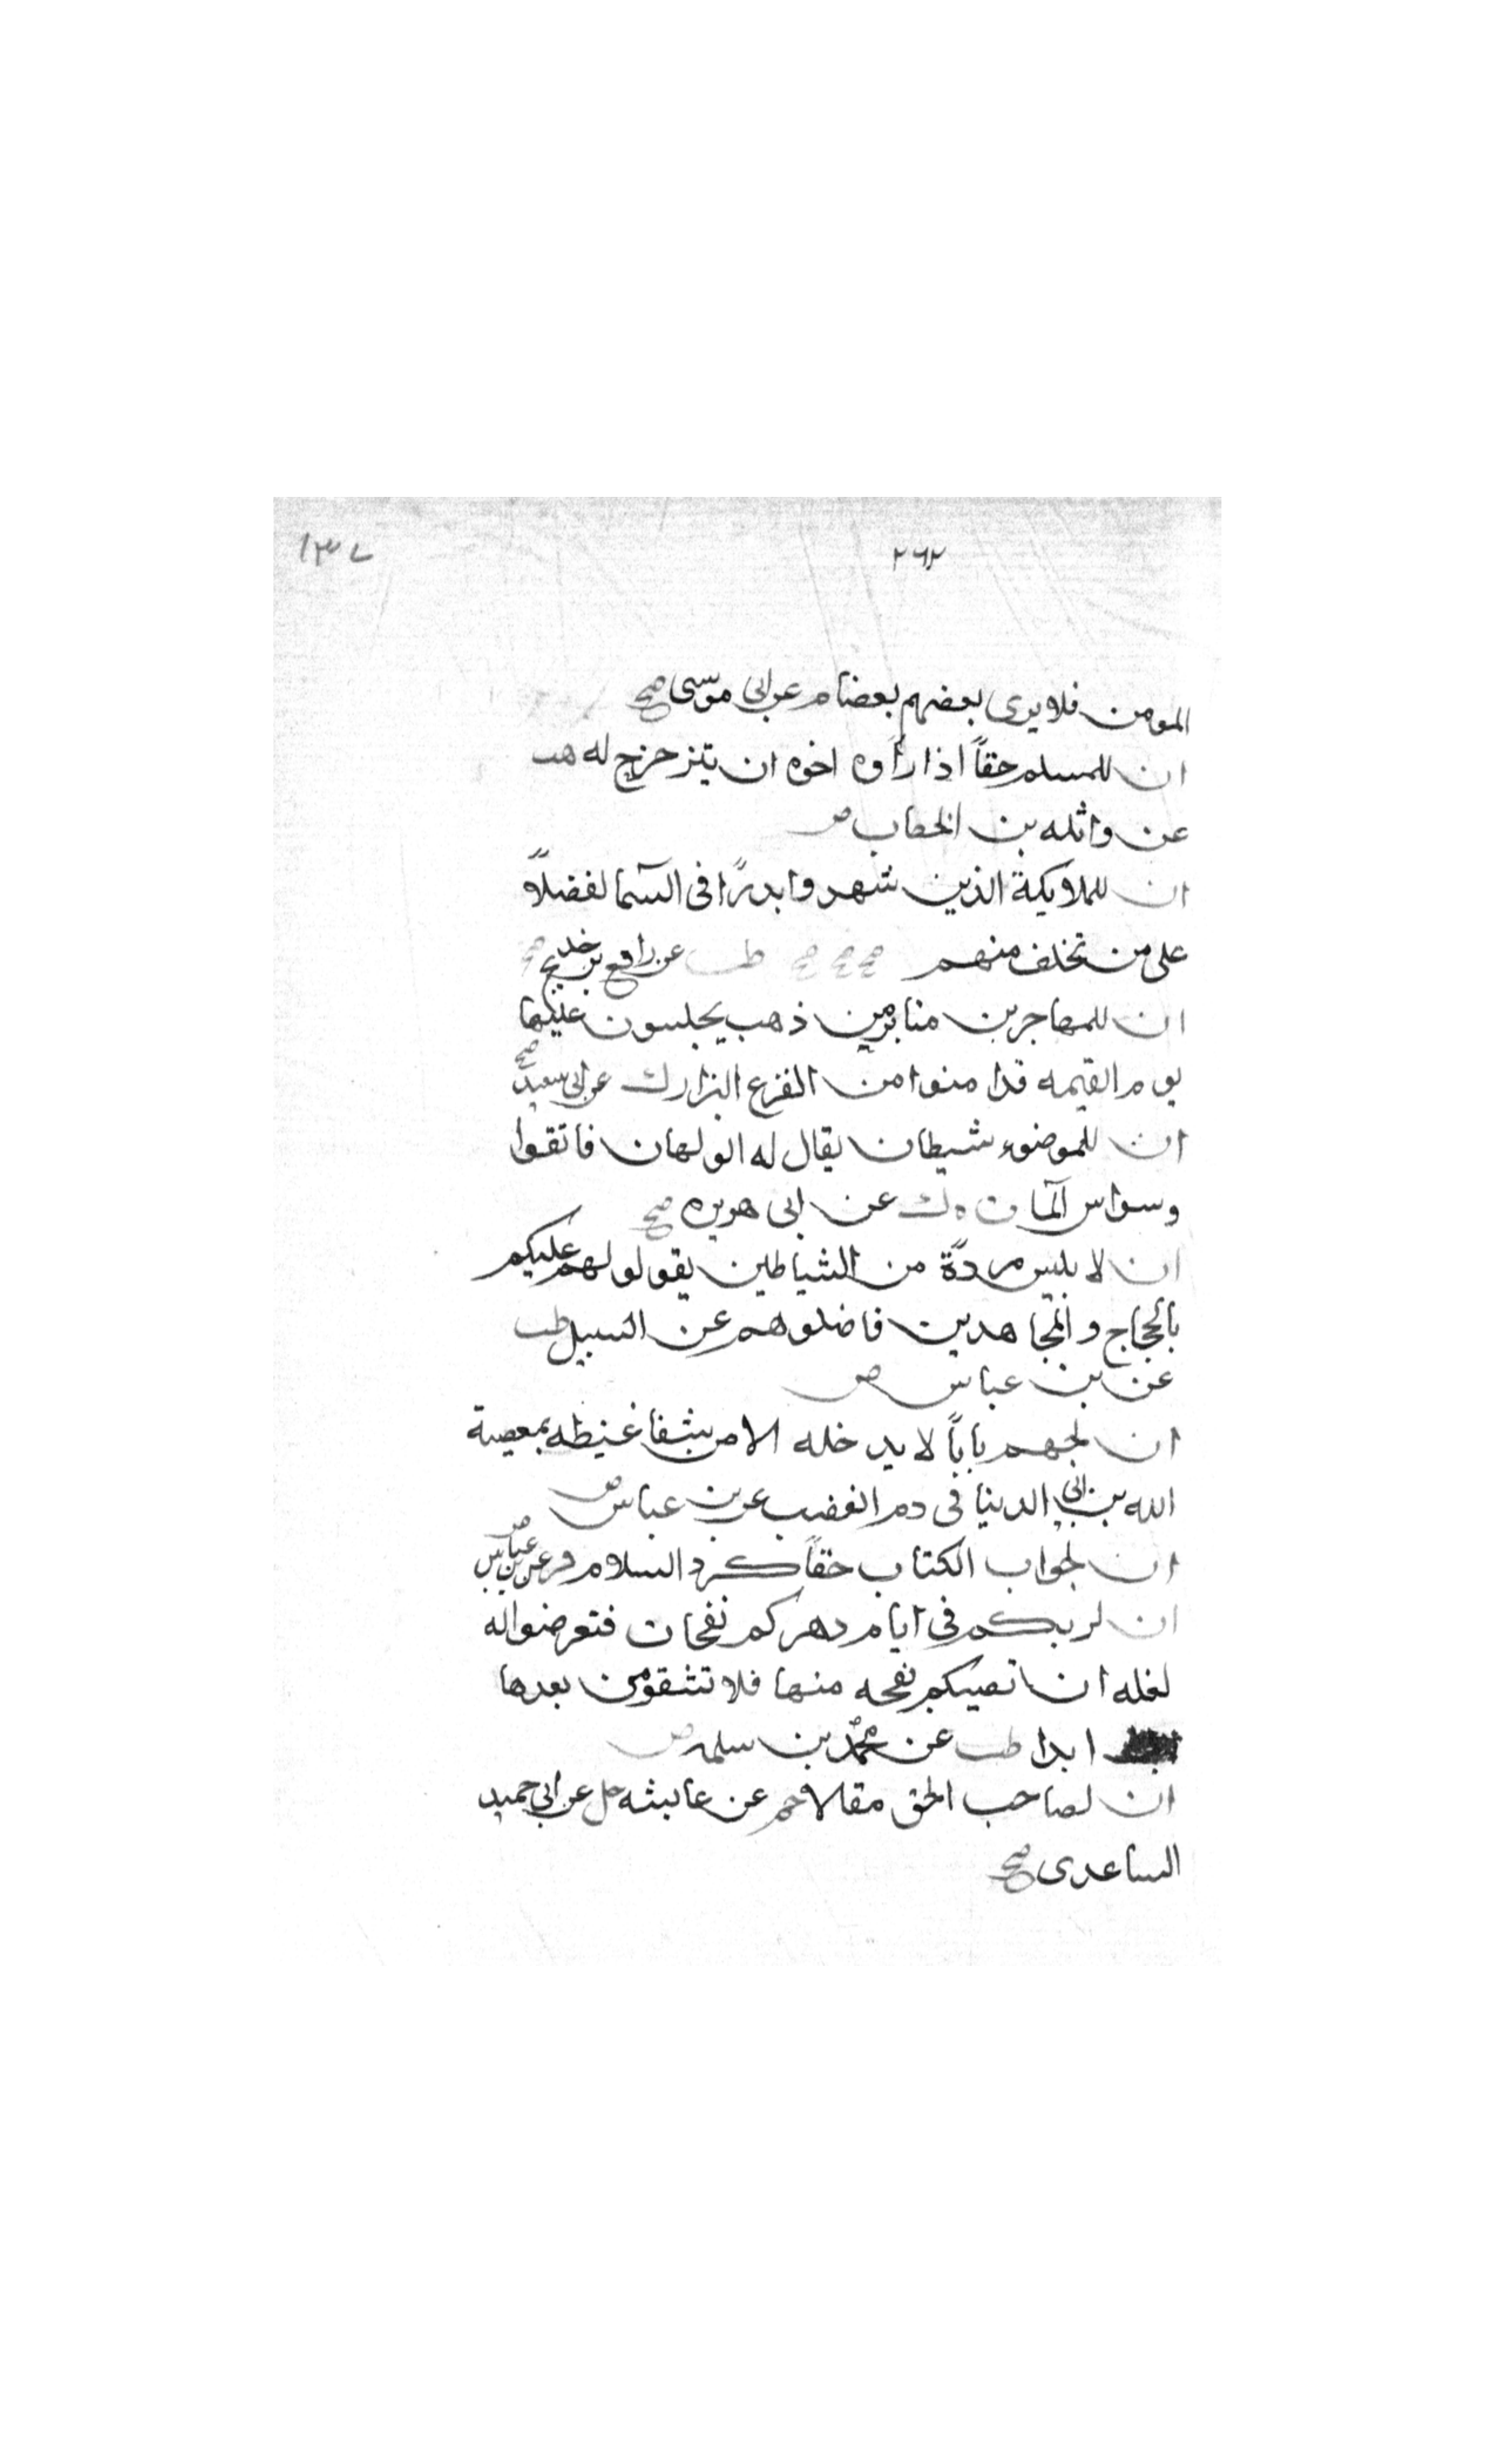 ١٣٧
٢٦٢
المومن فلا يرى بعضهم بعضا م عن ابى موسى صح
ان للمسلم حقاً اذا راوه اخوه ان يتزحزح له هب
عن واثله بن الخطاب ض
ان للملايكة الذين شهدوا بدرًا فى السما لفضلاً
على من تخلف منهم صح صح صح طب عن رافع بن خديج صح
ان للمهاجرين منابر من ذهب يجلسون عليها
يوم القيمه قد امنوا من الفزع البزار ك عن ابى سعيد صح
ان للموضوء شيطان يقال له الولهان فاتقوا
وسواس المآ ت ه ك عن ابى هريره صح
ان لابليس مردّة من الشياطين يقول لهم عليكم
بالحجاج والمجاهدين فاضلوهم عن السبيل طب
عن بن عباس ض
ان لجهم باباً لا يدخله الا من يشفا غيظه بمعصية
الله بن ابى الدنيا فى دم الغضب عن بن عباس ض
ان لجواب الكتاب حقاً كرد السلام فر عن بن عباس ض
ان لربكم فى ايام دهركم نفحات فتعرضوا له
لعله ان تصيبكم نفحه منها فلا تشقون بعدها
ابدا طب عن محمد بن سلمه ض
ان لصاحب الحق مقالا حم عن عايشه حل عن ابى حميد
الساعدى صح